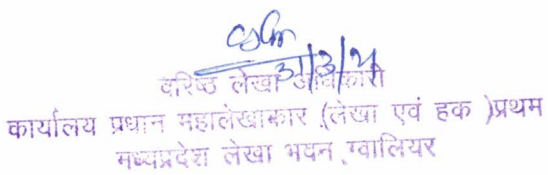 31/3/21
वरिष्ठ लेखा अधिकारी
कार्यालय प्रधान महालेखाकार (लेखा एवं हक )प्रथम
मध्यप्रदेश लेखा भवन ग्वालियर